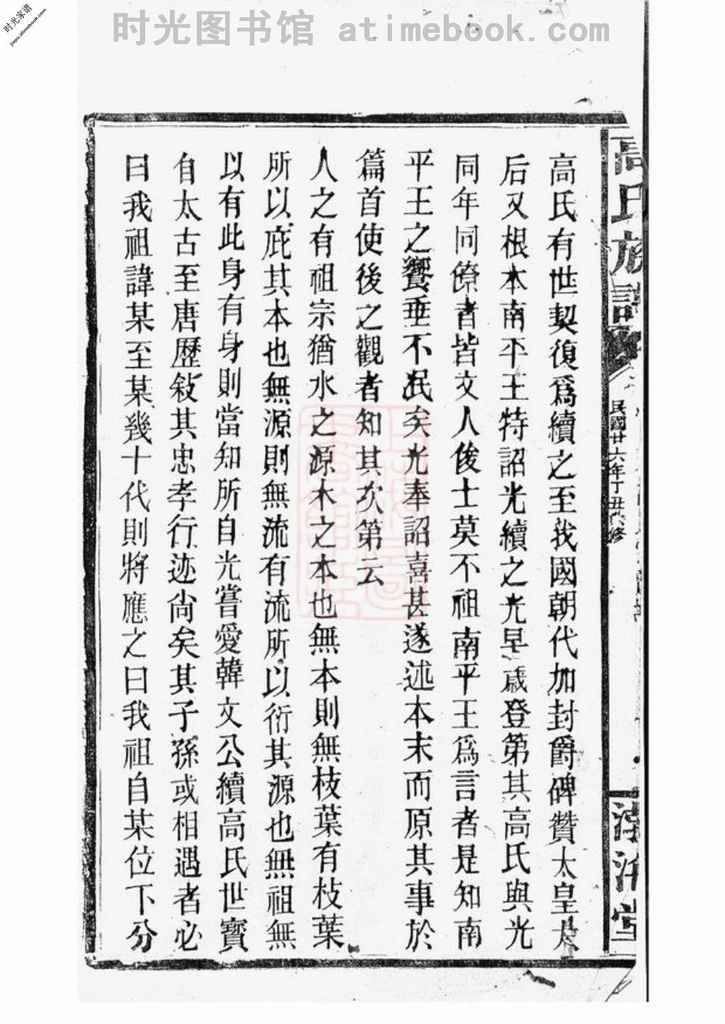 时光图书馆 atimebook.com
时光家谱
高氏族譜
民國廿六年丁丑 修
渤海堂
高氏有世契復爲續之至我國朝代加封爵碑贊太皇太
后又根本南平王特詔光續之光早歲登第其高氏與光
同年同僚者皆文人俊士莫不祖南平王爲言者是知南
平王之饗垂不泯矣光奉詔喜甚遂述本末而原其事於
篇首使後之觀者知其次第云
人之有祖宗猶水之源木之本也無本則無枝葉有枝葉
所以庇其本也無源則無流有流所以衍其源也無祖無
以有此身有身則當知所自光嘗愛韓文公續高氏世寳
自太古至唐歷敍其忠孝行迹尙矣其子孫或相遇者必
曰我祖諱某至某幾十代則將應之曰我祖自某位下分